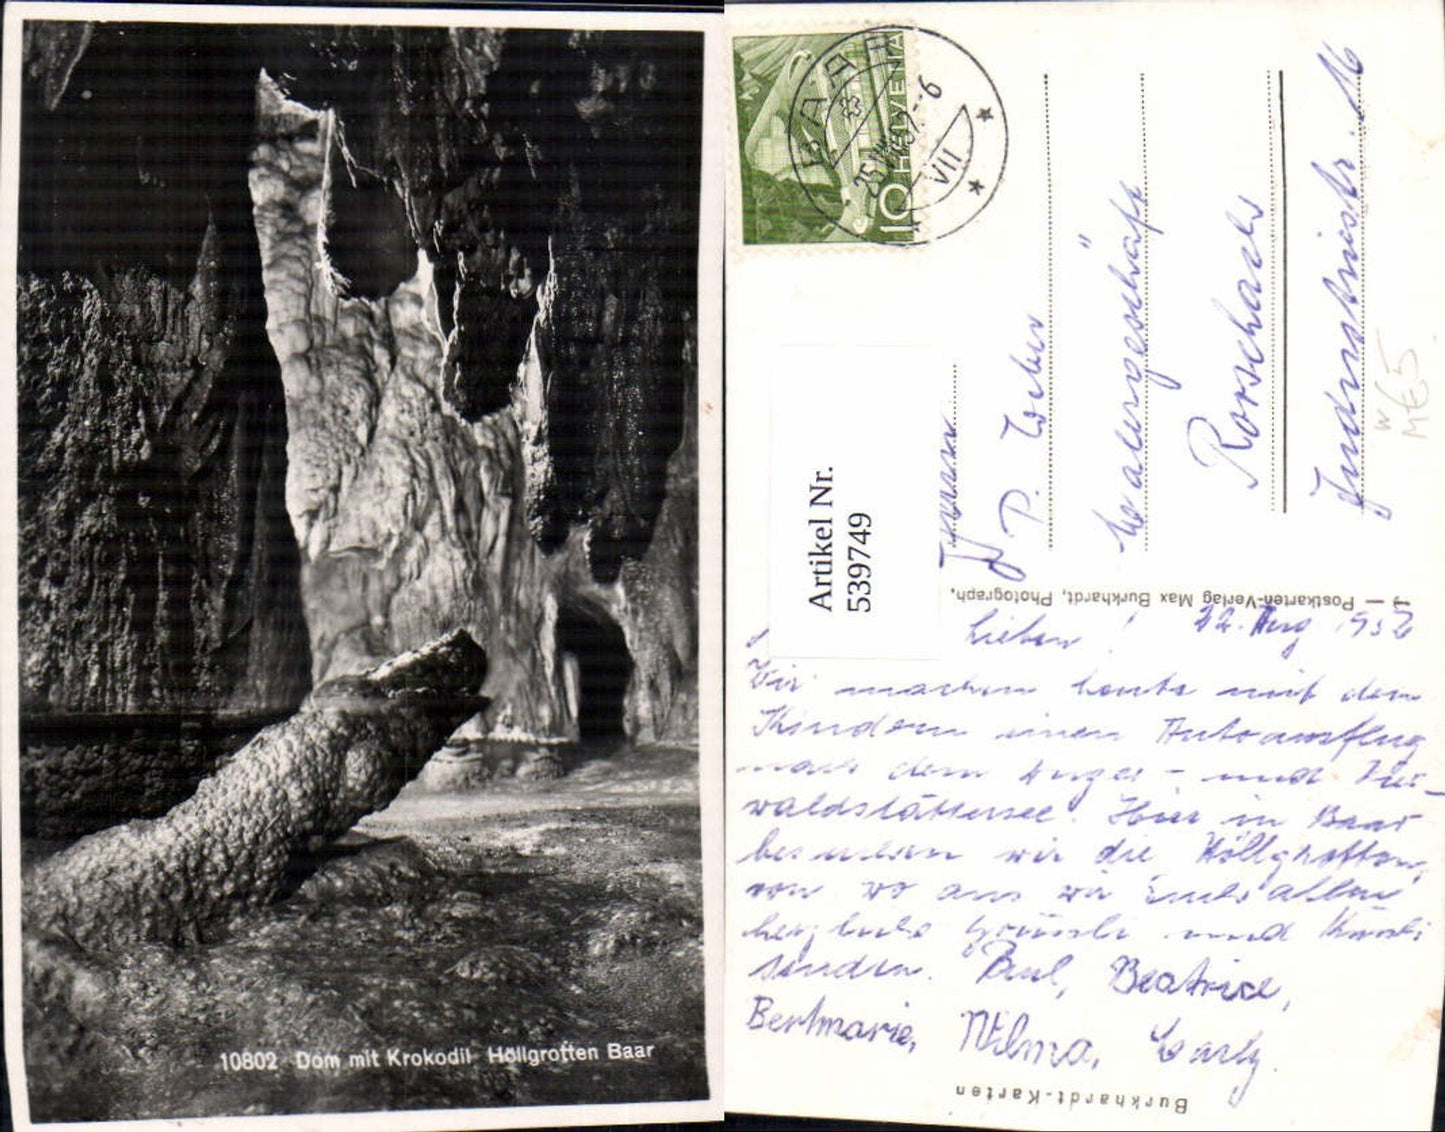 10802 Dom mit Krokodil Höllgrotten Baar
BAAR
25.VIII.52.-6
VII
HELVETIA
10
Artikel Nr.
539749
P. Weber
Malergeschäft
Rorschach
Industriestr. 16
W
M65
Postkarten-Verlag Max Burkhardt, Photograph,
Lieben! 22. Aug 1952
Wir machen heute mit den
Kindern einen Autoausflug
nach dem Zuger- und Vier-
waldstättersee. Hier in Baar
besuchen wir die Höllgrotten,
von wo aus wir Euch allen
herzliche Grüssli und Küssli
senden. Paul, Beatrice,
Bertmarie, Wilma, Carly.
Burkhardt-Karten